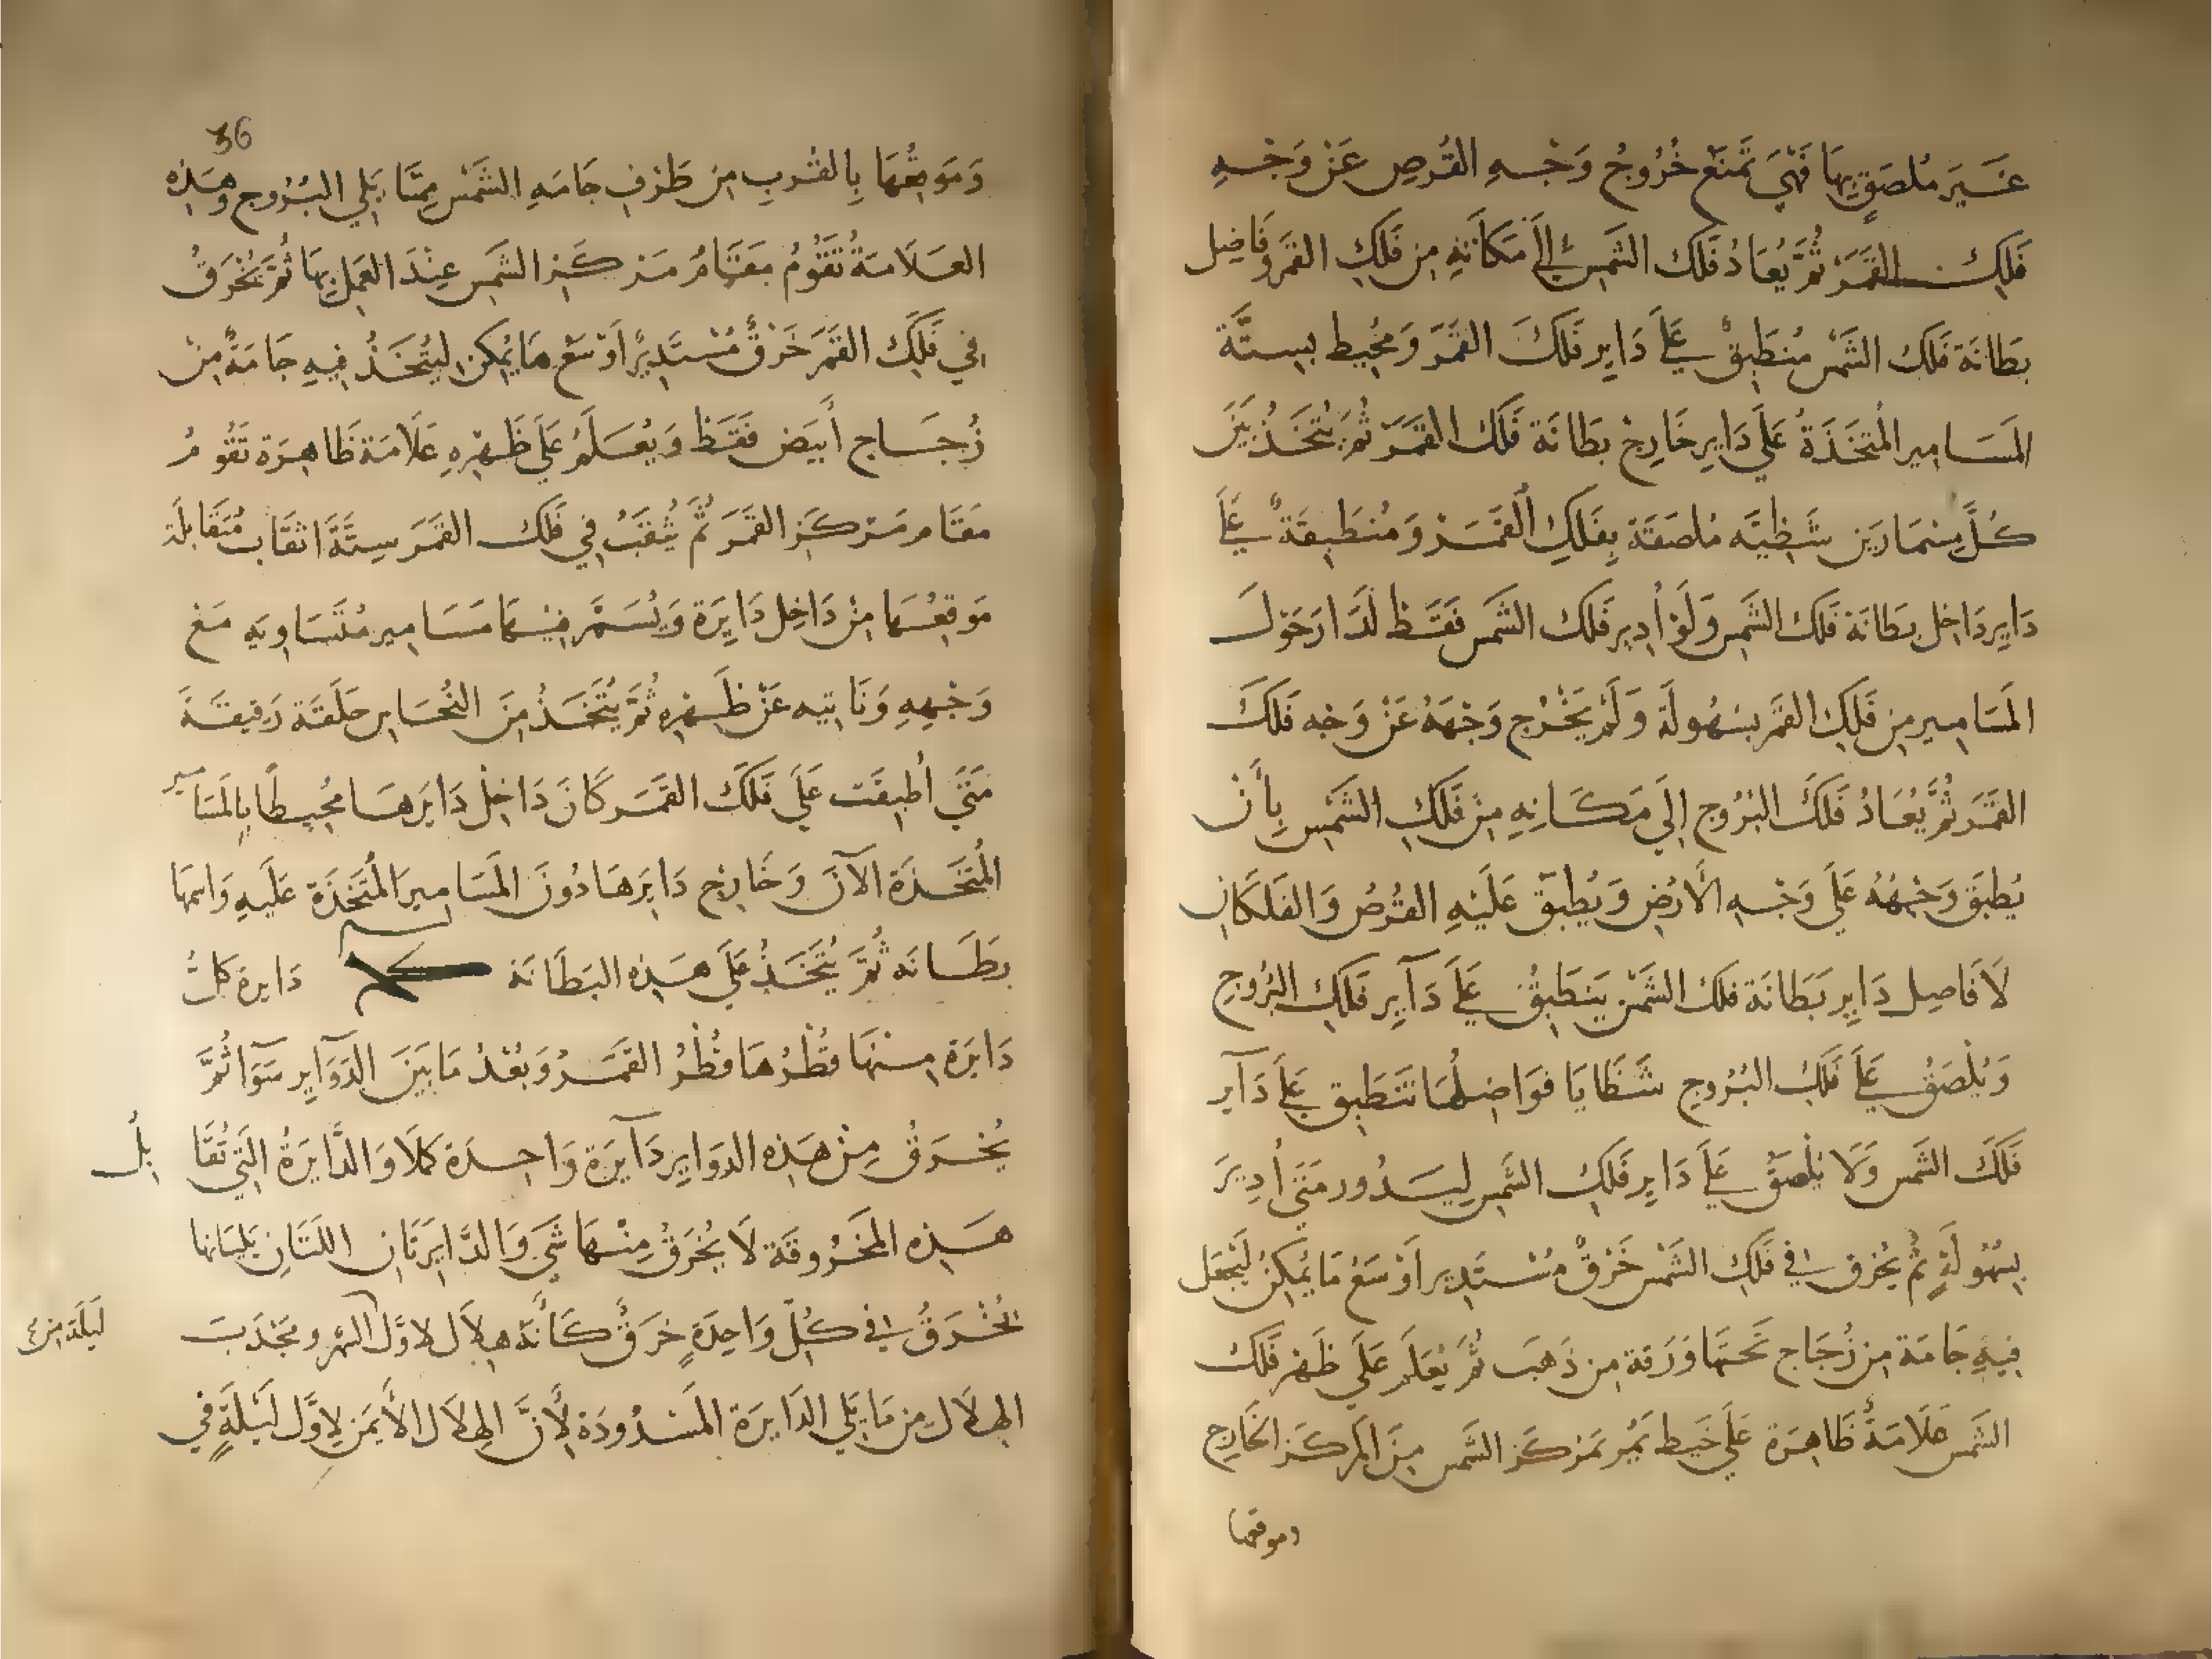 غَيرَ مُلصَقٍ بِهَا فَهِيَ تَمنَع خُرُوجُ وَجْهِ القُرصِ عَنْ وَجْهِ
فَلَكِ القَمَرَ ثُمَّ يُعَادُ فَلَك الشَّمسِ إِلَى مَكَانَهِ مِن فَلَكِ القَمَر وَفَاضِل
بِطَانَة فَلَك الشَّمس مُنطَبِقٌ عَلَى دَايِر فَلَكَ القَمَرَ وَمُحِيط بِستَّة
المَسَامِير المُتَّخَذَةُ عَلَى دَايِر خَارِجْ بطَانَة فَلَك القَمَرَ ثُمَّ يُتَّخَذُ بَيْنَ
كُلَّ مِسْمَارَين شَظِيَّه مُلصَقَة بِفَلَكِ القَمَرْ وَمُنطَبِقَةٌ عَلَى
دَايِر دَاخِل بِطَانَة فَلَك الشَّمس وَلَوْ أُدِير فَلَك الشَّمسِ فَقَط لَدَارَ حَوْلَ
المَسَامِير مِن فَلَكِ القَمَر بسُهُولَة وَلَمْ يَخْرُج وَجْهَهُ عَنْ وَجه فَلَكَ
القَمَرَ ثُمَّ يُعَادُ فَلَكَ البُرُوج إِلَى مَكَانِهِ مِنْ فَلَكِ الشَّمْسِ بِأَنْ
يُطبَقَ وَجْهُهُ عَلَى وَجْهِ الأَرْضِ وَيُطبَقَ عَلَيْهِ القُرصُ وَالفَلَكَانِ
لَا فَاصِل دَايِرِ بَطَانَة فَلَك الشَّمْسِ يَنطَبِقُ عَلَى دَآيِر فَلَكِ البُرُوجِ
وَيُلْصَقُ عَلَى فَلَكِ البُرُوج شَظَايَا فوَاضِلُهَا تَنطَبِق عَلَى دَآير
فَلَكَ الشَّمس وَلَا يَلْصَقْ عَلَى دَايِر فَلَكِ الشَّمسِ لِيَدُور مَتَى أُدِيرَ
بِسُهُولَةٍ ثُمَّ يُخرَق فِي فَلَكِ الشَّمْس خَرْقٌ مُسْتَدِير أَوْسَعْ مَا يُمكِنُ لَيُجعَل
فِيهِ جَامَة مِن زُجَاج تَحتَهَا وَرَقَة مِن ذَهَبَ ثُمَّ يُعَلَّم عَلَى ظَهرِ فَلَكَ
الشَّمس عَلَامَةٌ ظَاهِرَة عَلَى خَيط يَمُر بمَرْكَز الشَّمس مِنَ المَركَز الخَارِج
وموقعها
36
وَمَوقِعُهَا بِالقُربِ مِن طَرَفِ جَامَهِ الشَّمْسِ مِمَّا يَلِي البُرُوج وهَذِه
العَلَامَةُ تَقُومُ مقَامُ مَركَزِ الشَّمسِ عِنْدَ العَمَلِ بِهَا ثُمَّ يُخرَقُ
فِي فَلَكَ القَمَر خَرْقٌ مُسْتَدِيرٌ أَوْسَعْ مَا يُمكِن لِيُتَّخَذُ فِيهِ جَامَةٌ مِنْ
زُجَاج أَبيَض فَقَط وَيُعَلَّمُ عَلَى ظَهْرِهِ عَلَامَة ظَاهِرَة تَقُومُ
مَقَام مَرْكَزِ القَمَرَ ثُمَّ يُثقَبُ فِي فَلَك القَمَرَ سِتَّةَ اثقَاب مُتَقَابلَة
مَوقِعُهَا مِنْ دَاخِل دَايِرَة وَيُسَمَّر فِيهَا مَسَامِير مُتَسَاوِيَه مَعْ
وَجْهِهِ وَنَاتيِه عَنْ ظَهرِهِ ثُمَّ يُتَّخَذُ مِنَ النُّحَاسِ حَلَقَة رَقِيقَةَ
مَتَى أُطبِقَت عَلَى فَلَكَ القَمَر كَانَ دَاخِلْ دَايَرهَا مُحِيطًا بِالمَسَامير
المُتَّخَذَة الآنَ وَخَارِج دَايَرهَا دُونَ المَسَامِيرَ المُتَّخَذَة عَلَيهِ وَاسمهَا
بِطَانَه ثُمَّ يُتَّخَذُ عَلَى هَذِه البَطَانَة دَايرة كُلُّ
دَايَرة مِنهَا قُطْرُهَا قُطْرُ القَمَرُ وَبُعْدُ مَا بَيْنَ الدَّوَآيِر سَوَآ ثُمَّ
يُخرَقُ مِنْ هَذِه الدوَايِر دَآيَرَة وَاحِدَة كَمَلاً وَالدَّايَرةُ التَّي تُقَابِل
هَذِه المَخرُوقَة لَا يُخرَقُ مِنْهَا شَي وَالدَّايِرَتَانِ اللَتَانِ يَلِيَانها
يُخْرَقُ فِي كُلِّ وَاحِدَةٍ خَرقٌ كَأَنَّهُ هِلَال لاوَّل لَيلَة من الشهر ومَجْذَبَ
الهِلَال مِن مَا يَلِي الدَّايرَة المَسْدُودَة لِأَنَّ الهِلَال الأَيمَن لِأَوَّل لَيْلَةٍ في